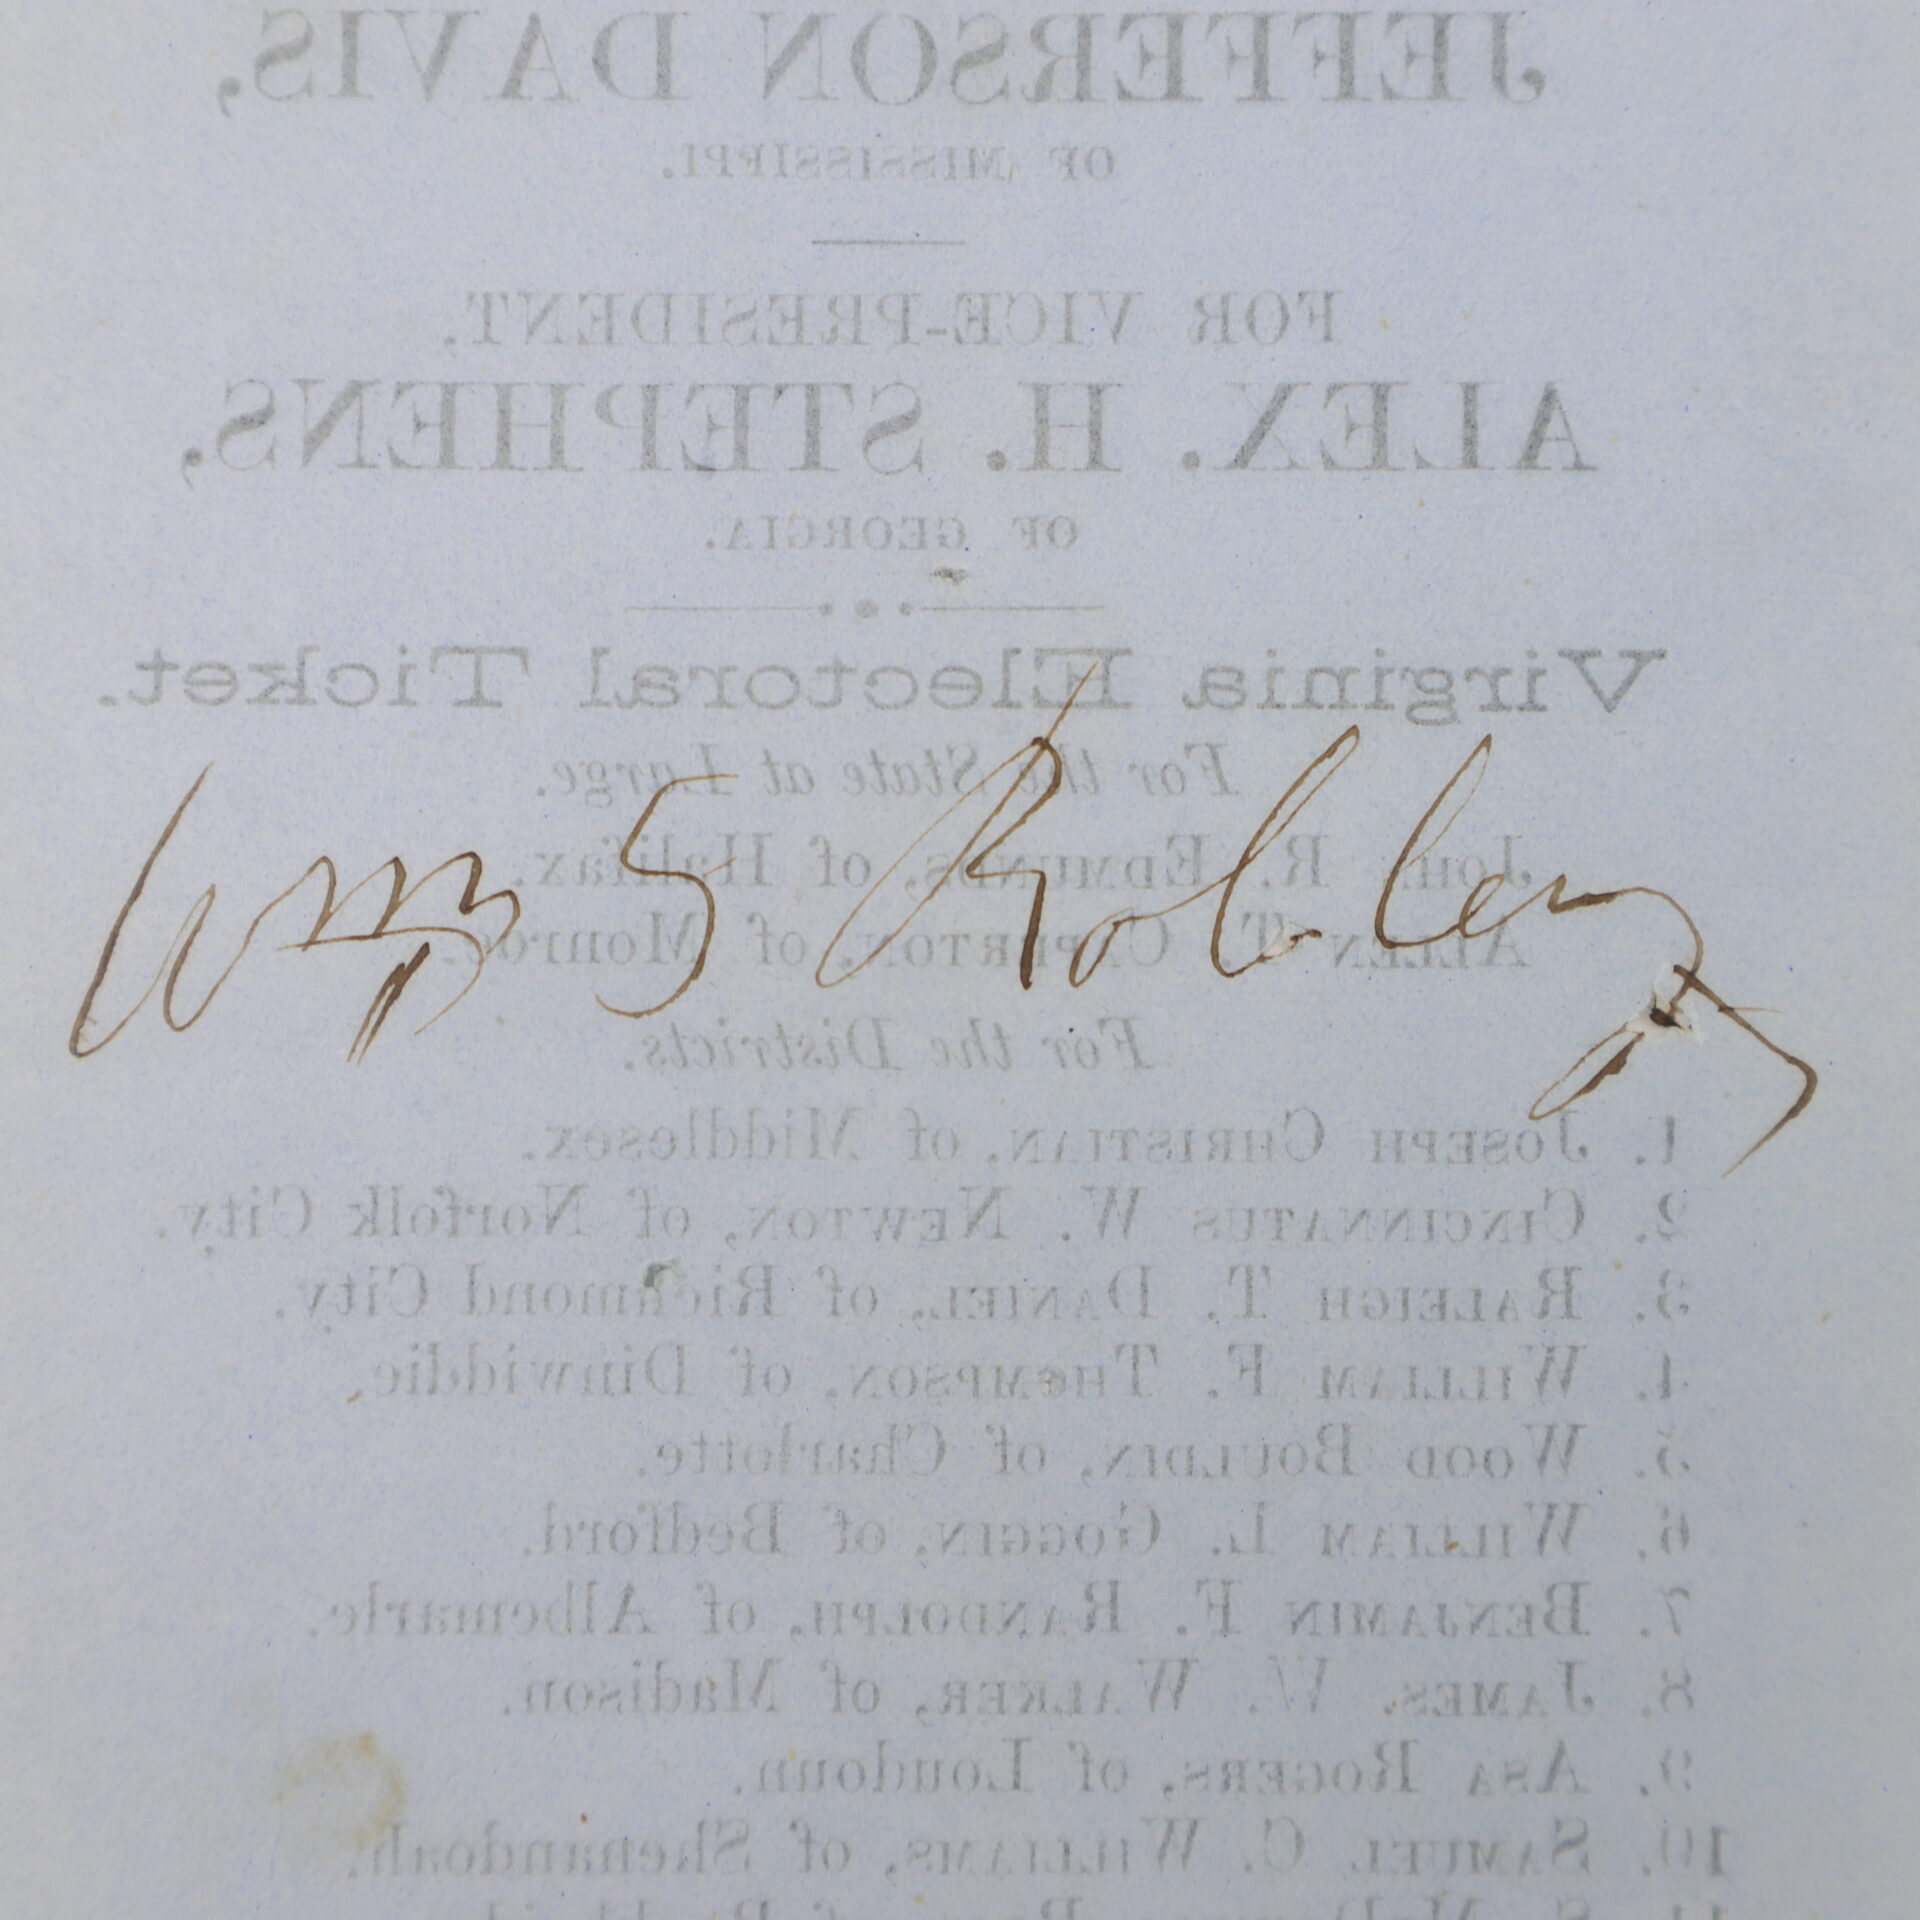 JEFFERSON DAVIS,
OF MISSISSIPPI.
FOR VICE-PRESIDENT,
ALEX. H. STEPHENS,
OF GEORGIA.
Virginia Electoral Ticket.
For the State at Large.
JOHN R. EDMUNDS, of Halifax.
ALLEN T. CAPERTON, of Monroe.
For the Districts.
1. JOSEPH CHRISTIAN, of Middlesex.
2. CINCINNATUS W. NEWTON, of Norfolk City.
3. RALEIGH T. DANIEL, of Richmond City.
4. WILLIAM F. THOMPSON, of Dinwiddie.
5. WOOD BOULDIN, of Charlotte.
6. WILLIAM L. GOGGIN, of Bedford.
7. BENJAMIN F. RANDOLPH, of Albemarle.
8. JAMES. W. WALKER, of Madison.
9. ASA ROGERS, of Loudoun.
10. SAMUEL C. WILLIAMS, of Shenandoah.